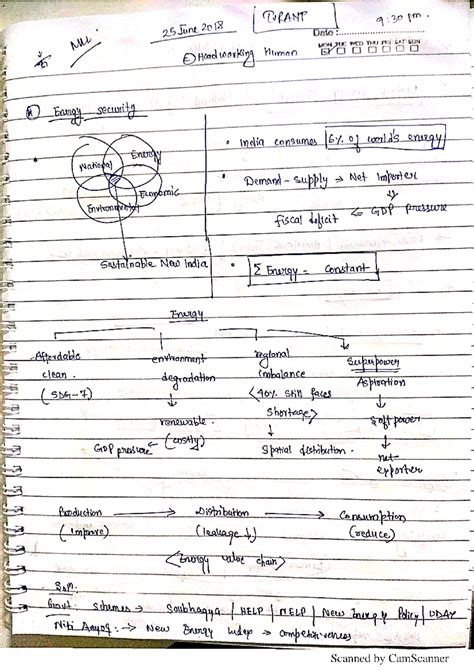 25 June 2018
9:30 pm.
Date:
Hardworking Human
MON TUE WED THU FRI SAT SUN
Energy security
National
Energy
Economic
Environmental
Sustainable New India
• India consumes 6% of world's energy
• Demand - Supply → Net Importer
fiscal deficit ← GDP pressure
• Σ Energy - Constant
Energy
Affordable clean (SDG-7)
environment degradation
↓
renewable (costly)
GDP pressure ←
regional imbalance
<40% still faces shortage>
↓
Spatial distribution.
Superpower Aspiration
↓
Soft power
↓
net-exporter
Production → Distribution → Consumption
(improve) (leakage ↓) (reduce)
<Energy value chain>
Govt. schemes → Saubhagya | HELP | NELP | New Energy Policy | UDAY
Niti Aayog: → New Energy Index → competitiveness
Scanned by CamScanner